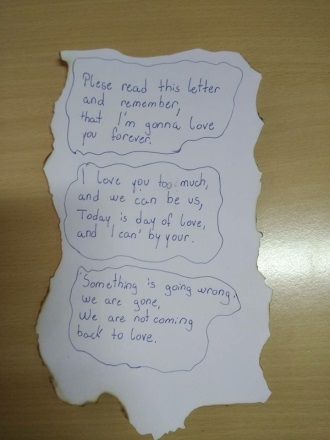 Plese read this letter
and remember,
that I'm gonna love
you forever.
I love you too much,
and we can be us,
Today is day of love,
and I can' by your.
Something is going wrong,
we are gone,
We are not coming
back to love.